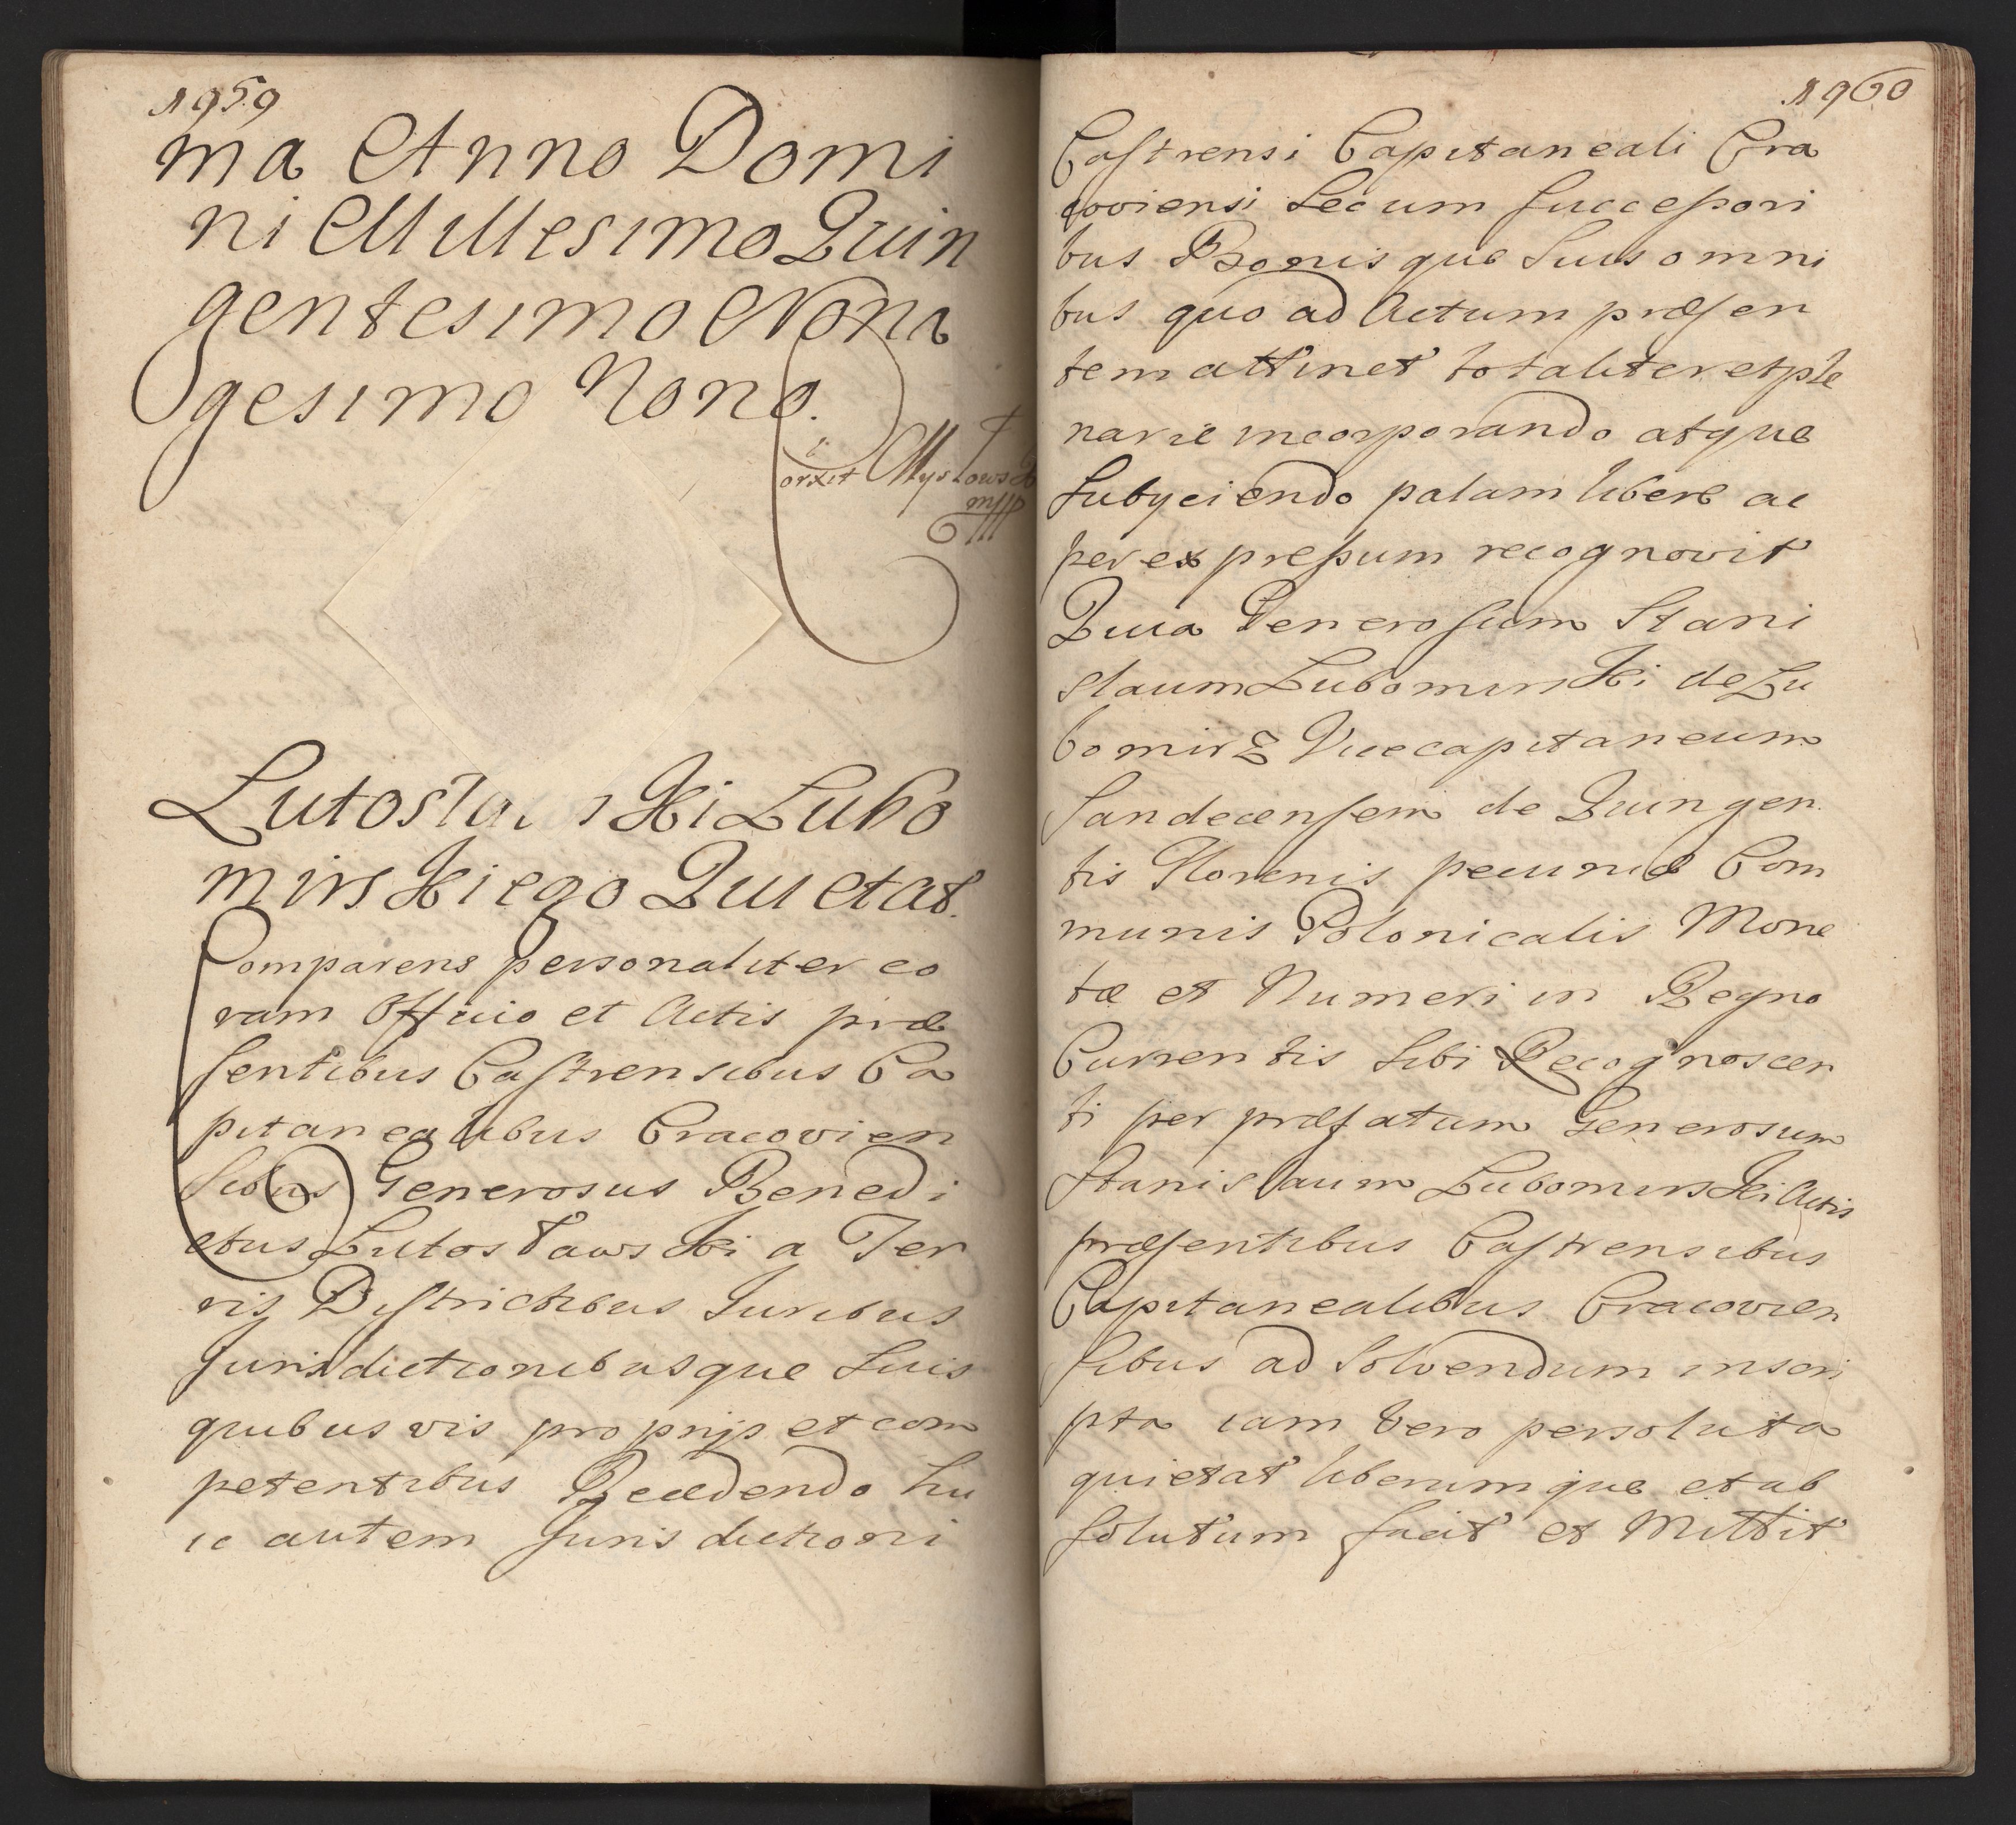 1959
ma Anno Domi
ni Millesimo Quin
gentesimo Nona
gesimo Nono.
Lutosla i ski Lubo
mirskiego Quietat.
Comparens personaliter co
ram Officio et Actis præ
sentibus Castrensibus Ca
pitanealibus Cracovien
sibus Generosus Benedi
ctus Lutosławski a Ter
ris Districtibus Iuribus
Jurisdictionibusque Suis
quibus vis proprijs et com
petentibus Recedendo hu
ic autem Jurisdictioni
1960
Castrensi Capitaneali Cra
coviensi Secum successori
bus Bonisque Suis omni
bus quo ad Actum præsen
tem attinet totaliter et ple
narie incorporando atque
subyciendo palam libere ac
per expressum recognovit
Quia Generosum Stani
slaum Lubomirski de Lu
bomirz Vicecapitaneum
Sandecensem de Quingen
tis Florenis pecuniæ Com
munis Polonicalis Mone
tæ et Numeri in Regno
Currentis Sibi Recognoscen
ti per præfatum Generosum
Stanislaum Lubomirski Actis
præsentibus Castrensibus
Capitanealibus Cracovien
sibus ad Solvendum inscri
pta iam Vero persoluta
quietat liberumque et ab
solutum facit et Mittit